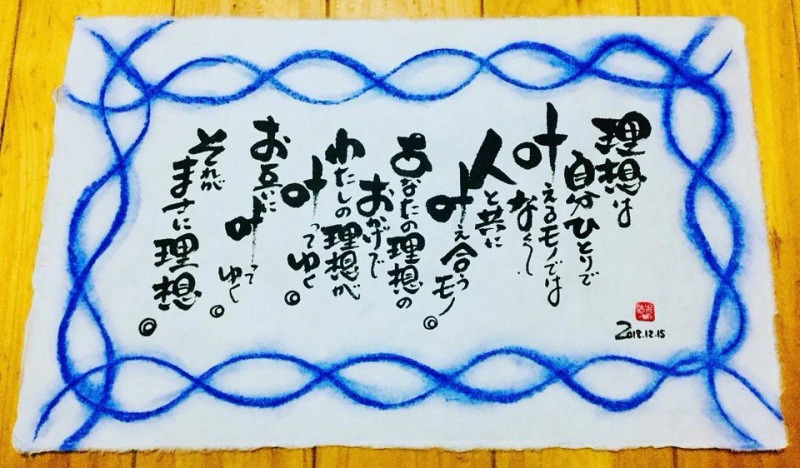 理想は
自分ひとりで
叶えるモノでは
なく〜
人と共に
叶え合うモノ。
あなたの理想の
おかげで
わたしの理想が
叶ってゆく。
お互いに
叶ってゆく。
それが
まさに理想。
2018.12.15